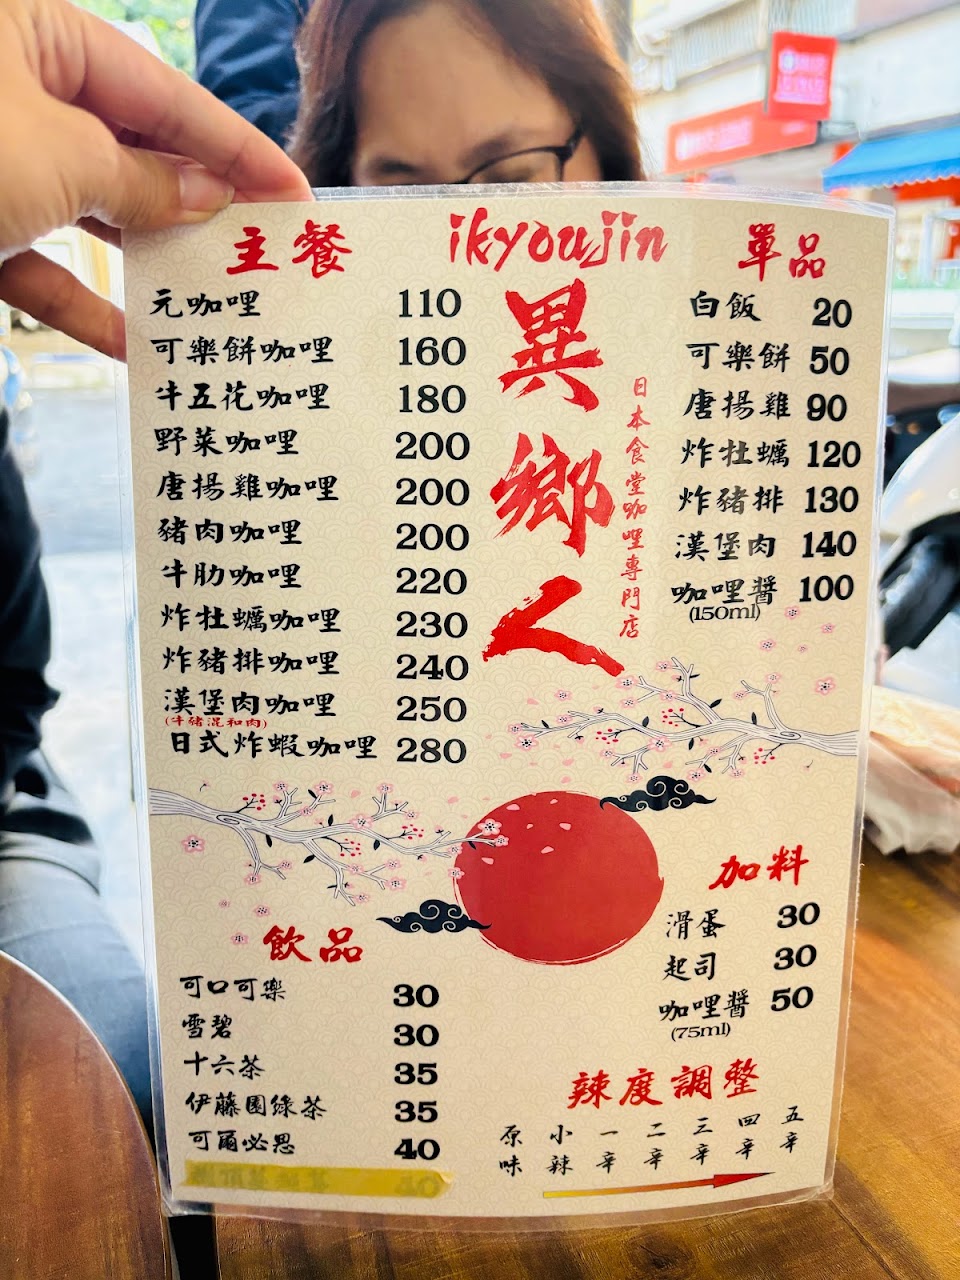 主餐
元咖哩 110
可樂餅咖哩 160
牛五花咖哩 180
野菜咖哩 200
唐揚雞咖哩 200
豬肉咖哩 200
牛肋咖哩 220
炸牡蠣咖哩 230
炸豬排咖哩 240
漢堡肉咖哩 250
(牛豬混和肉)
日式炸蝦咖哩 280
ikyoujin
異鄉人
日本食堂咖哩專門店
單品
白飯 20
可樂餅 50
唐揚雞 90
炸牡蠣 120
炸豬排 130
漢堡肉 140
咖哩醬 100
(150ml)
飲品
可口可樂 30
雪碧 30
十六茶 35
伊藤園綠茶 35
可爾必思 40
加料
滑蛋 30
起司 30
咖哩醬 50
(75ml)
辣度調整
原味 小辣 一辛 二辛 三辛 四辛 五辛